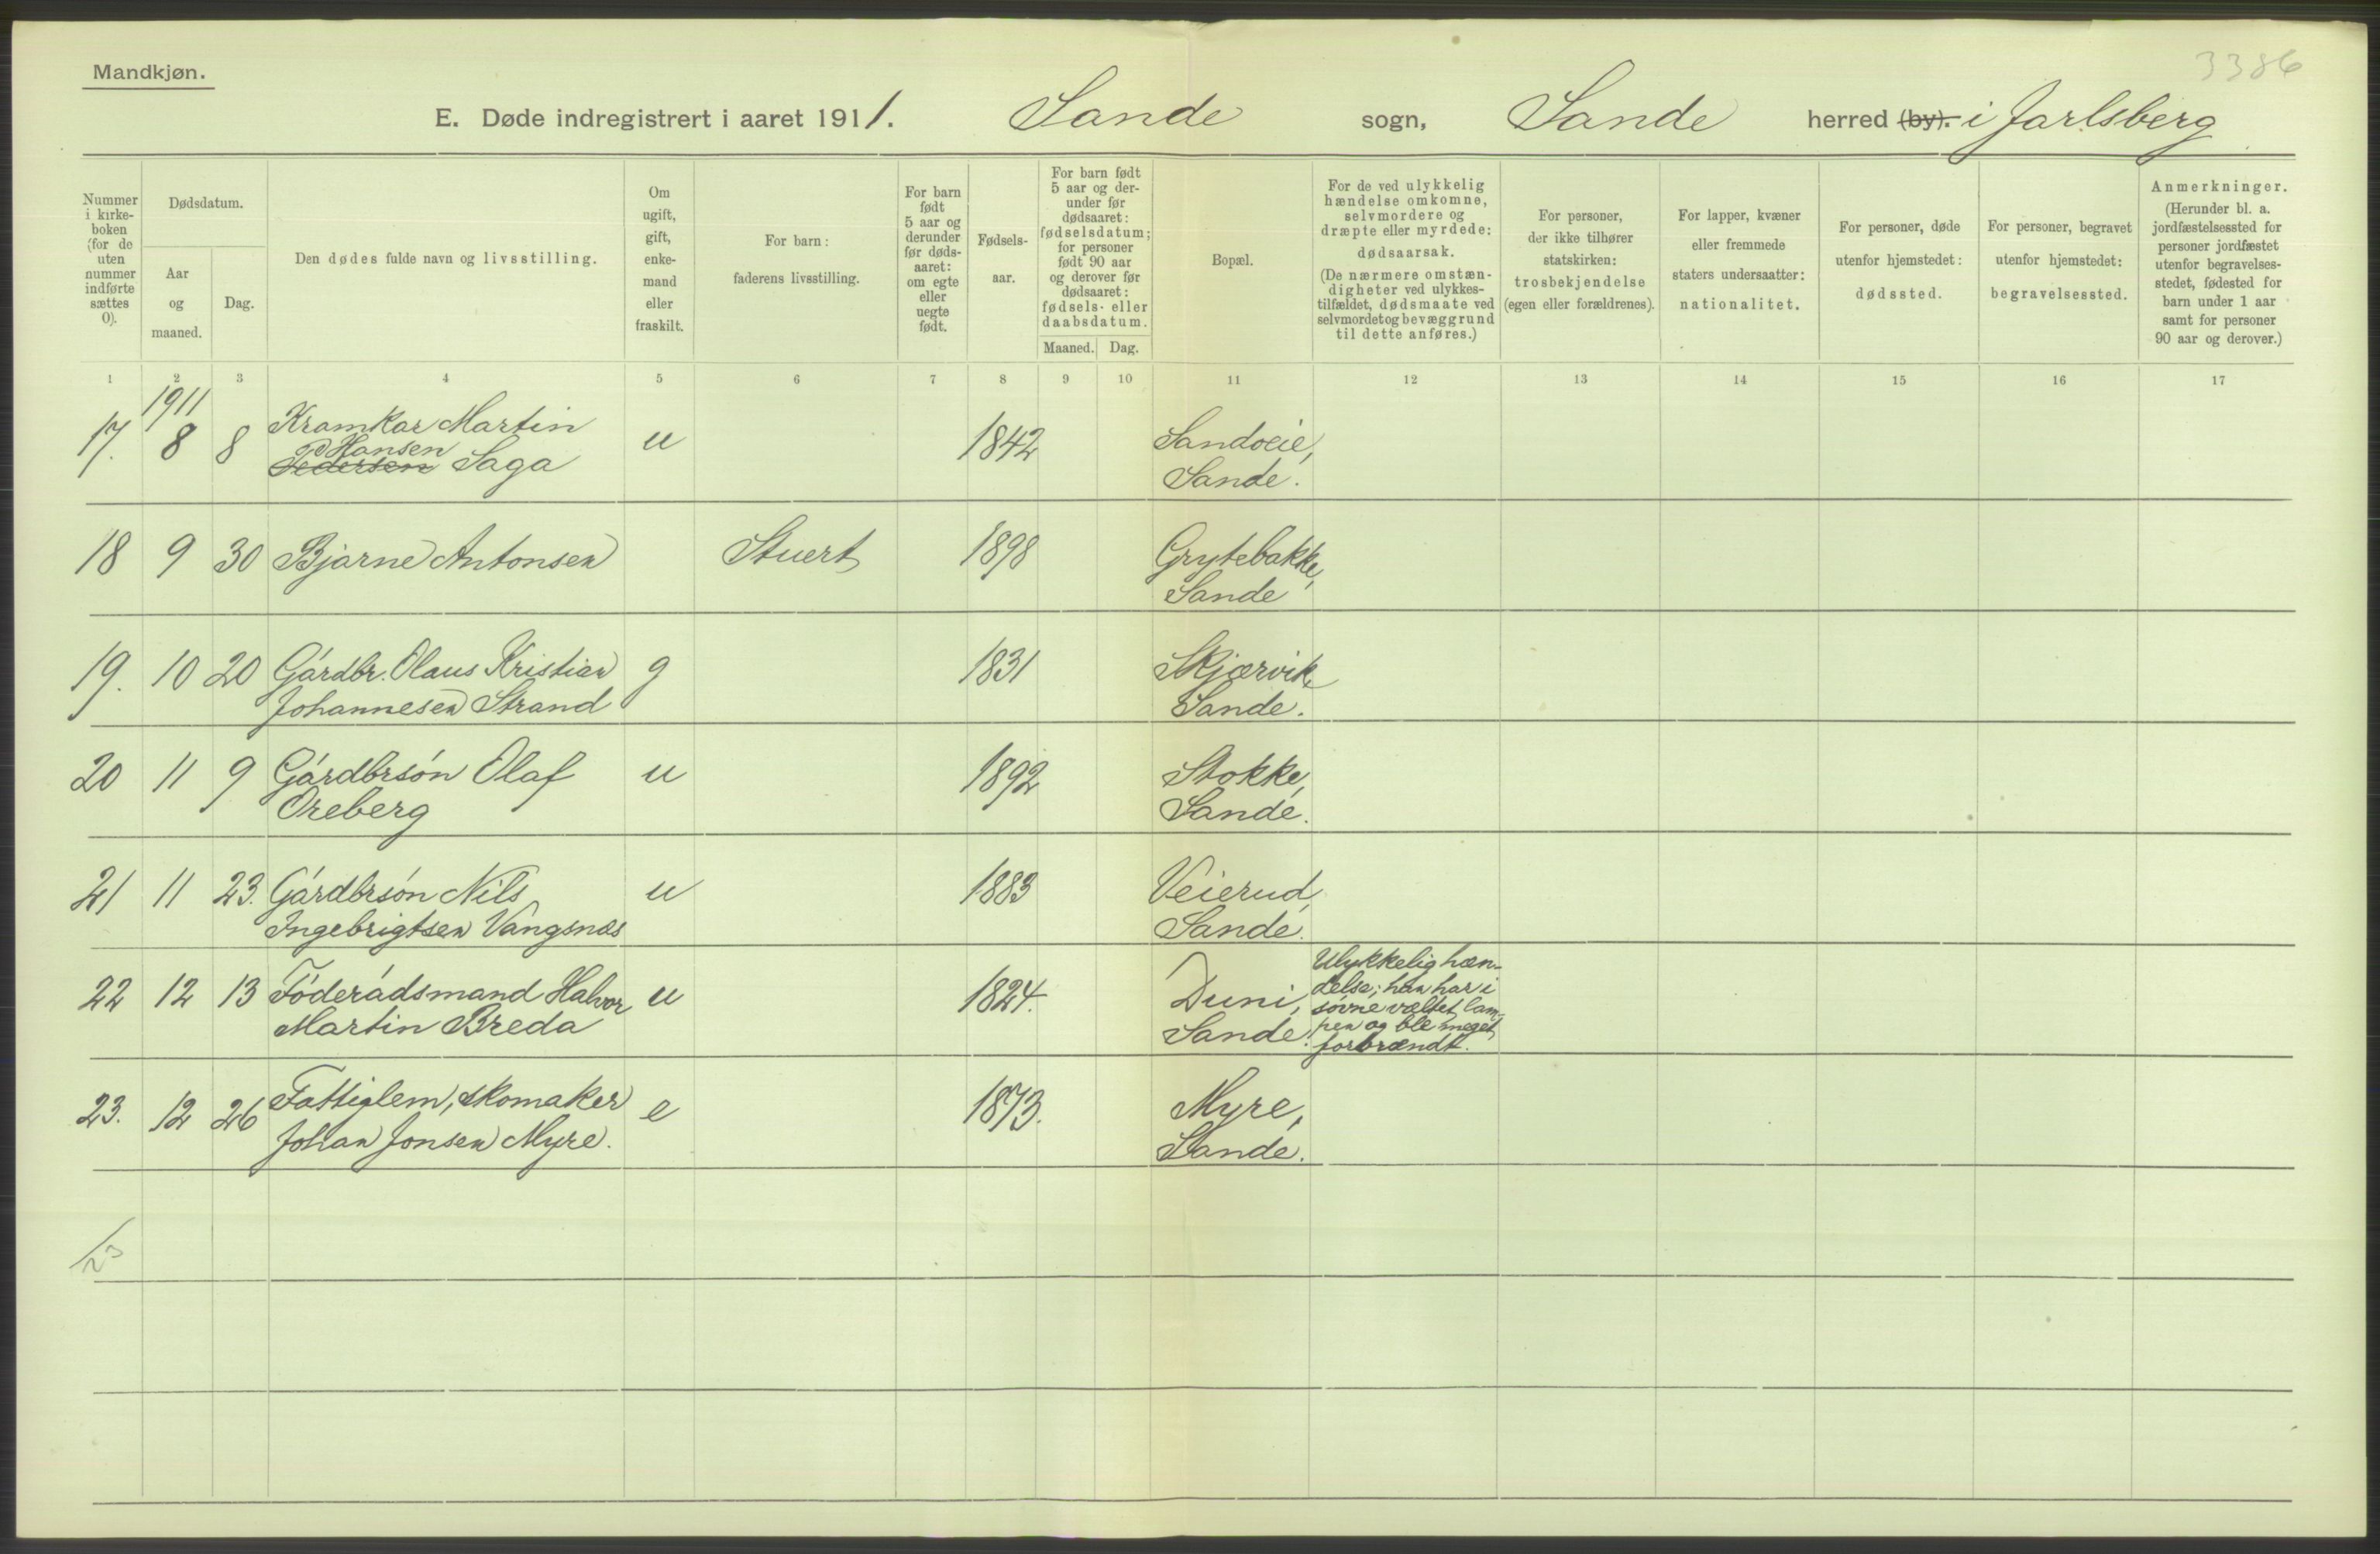 Mandkjøn.
3386
E. Døde indregistrert i aaret 1911. Sande sogn, Sande herred (by). i Jarlsberg
Nummer i kirke-boken (for de uten nummer indførte sættes 0).
Dødsdatum.
Aar og maaned.
Dag.
Den dødes fulde navn og livsstilling.
Om ugift, gift, enke-mand eller fraskilt.
For barn: faderens livsstilling.
For barn født 5 aar og derunder før døds-aaret: om egte eller uegte født.
Fødsels-aar.
For barn født 5 aar og der-under før dødsaaret: fødselsdatum; for personer født 90 aar og derover før dødsaaret: fødsels- eller daabsdatum.
Maaned. Dag.
Bopæl.
For de ved ulykkelig hændelse omkomne, selvmordere og dræpte eller myrdede: dødsaarsak. (De nærmere omstæn-digheter ved ulykkes-tilfældet, dødsmaate ved selvmordet og bevæggrund til dette anføres.)
For personer, der ikke tilhører statskirken: trosbekjendelse (egen eller forældrenes).
For lapper, kvæner eller fremmede staters undersaatter: nationalitet.
For personer, døde utenfor hjemstedet: dødssted.
For personer, begravet utenfor hjemstedet: begravelsessted.
Anmerkninger. (Herunder bl. a. jordfæstelsessted for personer jordfæstet utenfor begravelses-stedet, fødested for barn under 1 aar samt for personer 90 aar og derover.)
1 2 3 4 5 6 7 8 9 10 11 12 13 14 15 16 17
1911
17. 8 8 Kramkar Martin u 1842 Sandoeie,
Hansen
Pedersen Saga Sande.
18 9 30 Bjarne Antonsen Stuert 1898 Grytebakke,
Sande
19. 10 20 Gárdbr. Olaus Kristian g 1831 Skjærvik,
Johannesen Strand Sande.
20 11 9 Gárdbrsón Olaf u 1892 Stokke,
Oreberg Sande.
21 11 23. Gárdbrsón Nils u 1883 Veierud,
Ingebrigtsen Vangsnæs Sande.
22 12 13 Fóderádsmand Halvor u 1824. Duni,
Martin Breda Sande.
Ulykkelig hæn-
delse; han har i
sóvne væltet lam-
pen og ble meget
forbrændt.
23. 12 26 Fattiglem, skomaker e 1873. Myre,
Johan Jonsen Myre. Sande.